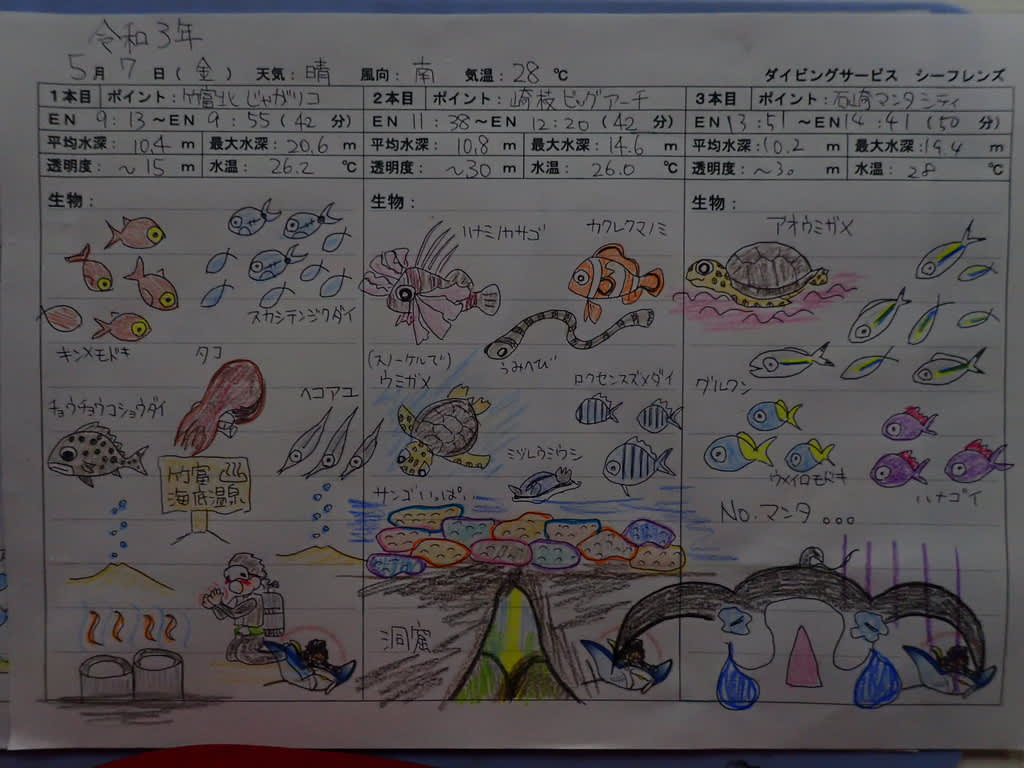 令和3年
5月 7日(金) 天気:晴 風向:南 気温:28℃ ダイビングサービス シーフレンズ
1本目 ポイント:竹富北 じゃがリコ
EN 9:13~EN 9:55(42分)
平均水深:10.4m 最大水深:20.6m
透明度:~15m 水温:26.2℃
生物:
スカシテンジクダイ
キンメモドキ
タコ
ヘコアユ
チョウチョウコショウダイ
竹富
海底温泉
2本目 ポイント:崎枝ビッグアーチ
EN 11:38~EN 12:20(42分)
平均水深:10.8m 最大水深:14.6m
透明度:~30m 水温:26.0℃
生物:
ハナミノカサゴ
カクレクマノミ
うみへび
(スノーケルで)
ウミガメ
ロクセンスズメダイ
ミゾレウミウシ
サンゴいっぱい
洞窟
3本目 ポイント:石崎マンタシティ
EN 13:51~EN 14:41(50分)
平均水深:10.2m 最大水深:19.4m
透明度:~30m 水温:28℃
生物:
アオウミガメ
グルクン
ウメイロモドキ
ハナゴイ
No.マンタ。。。